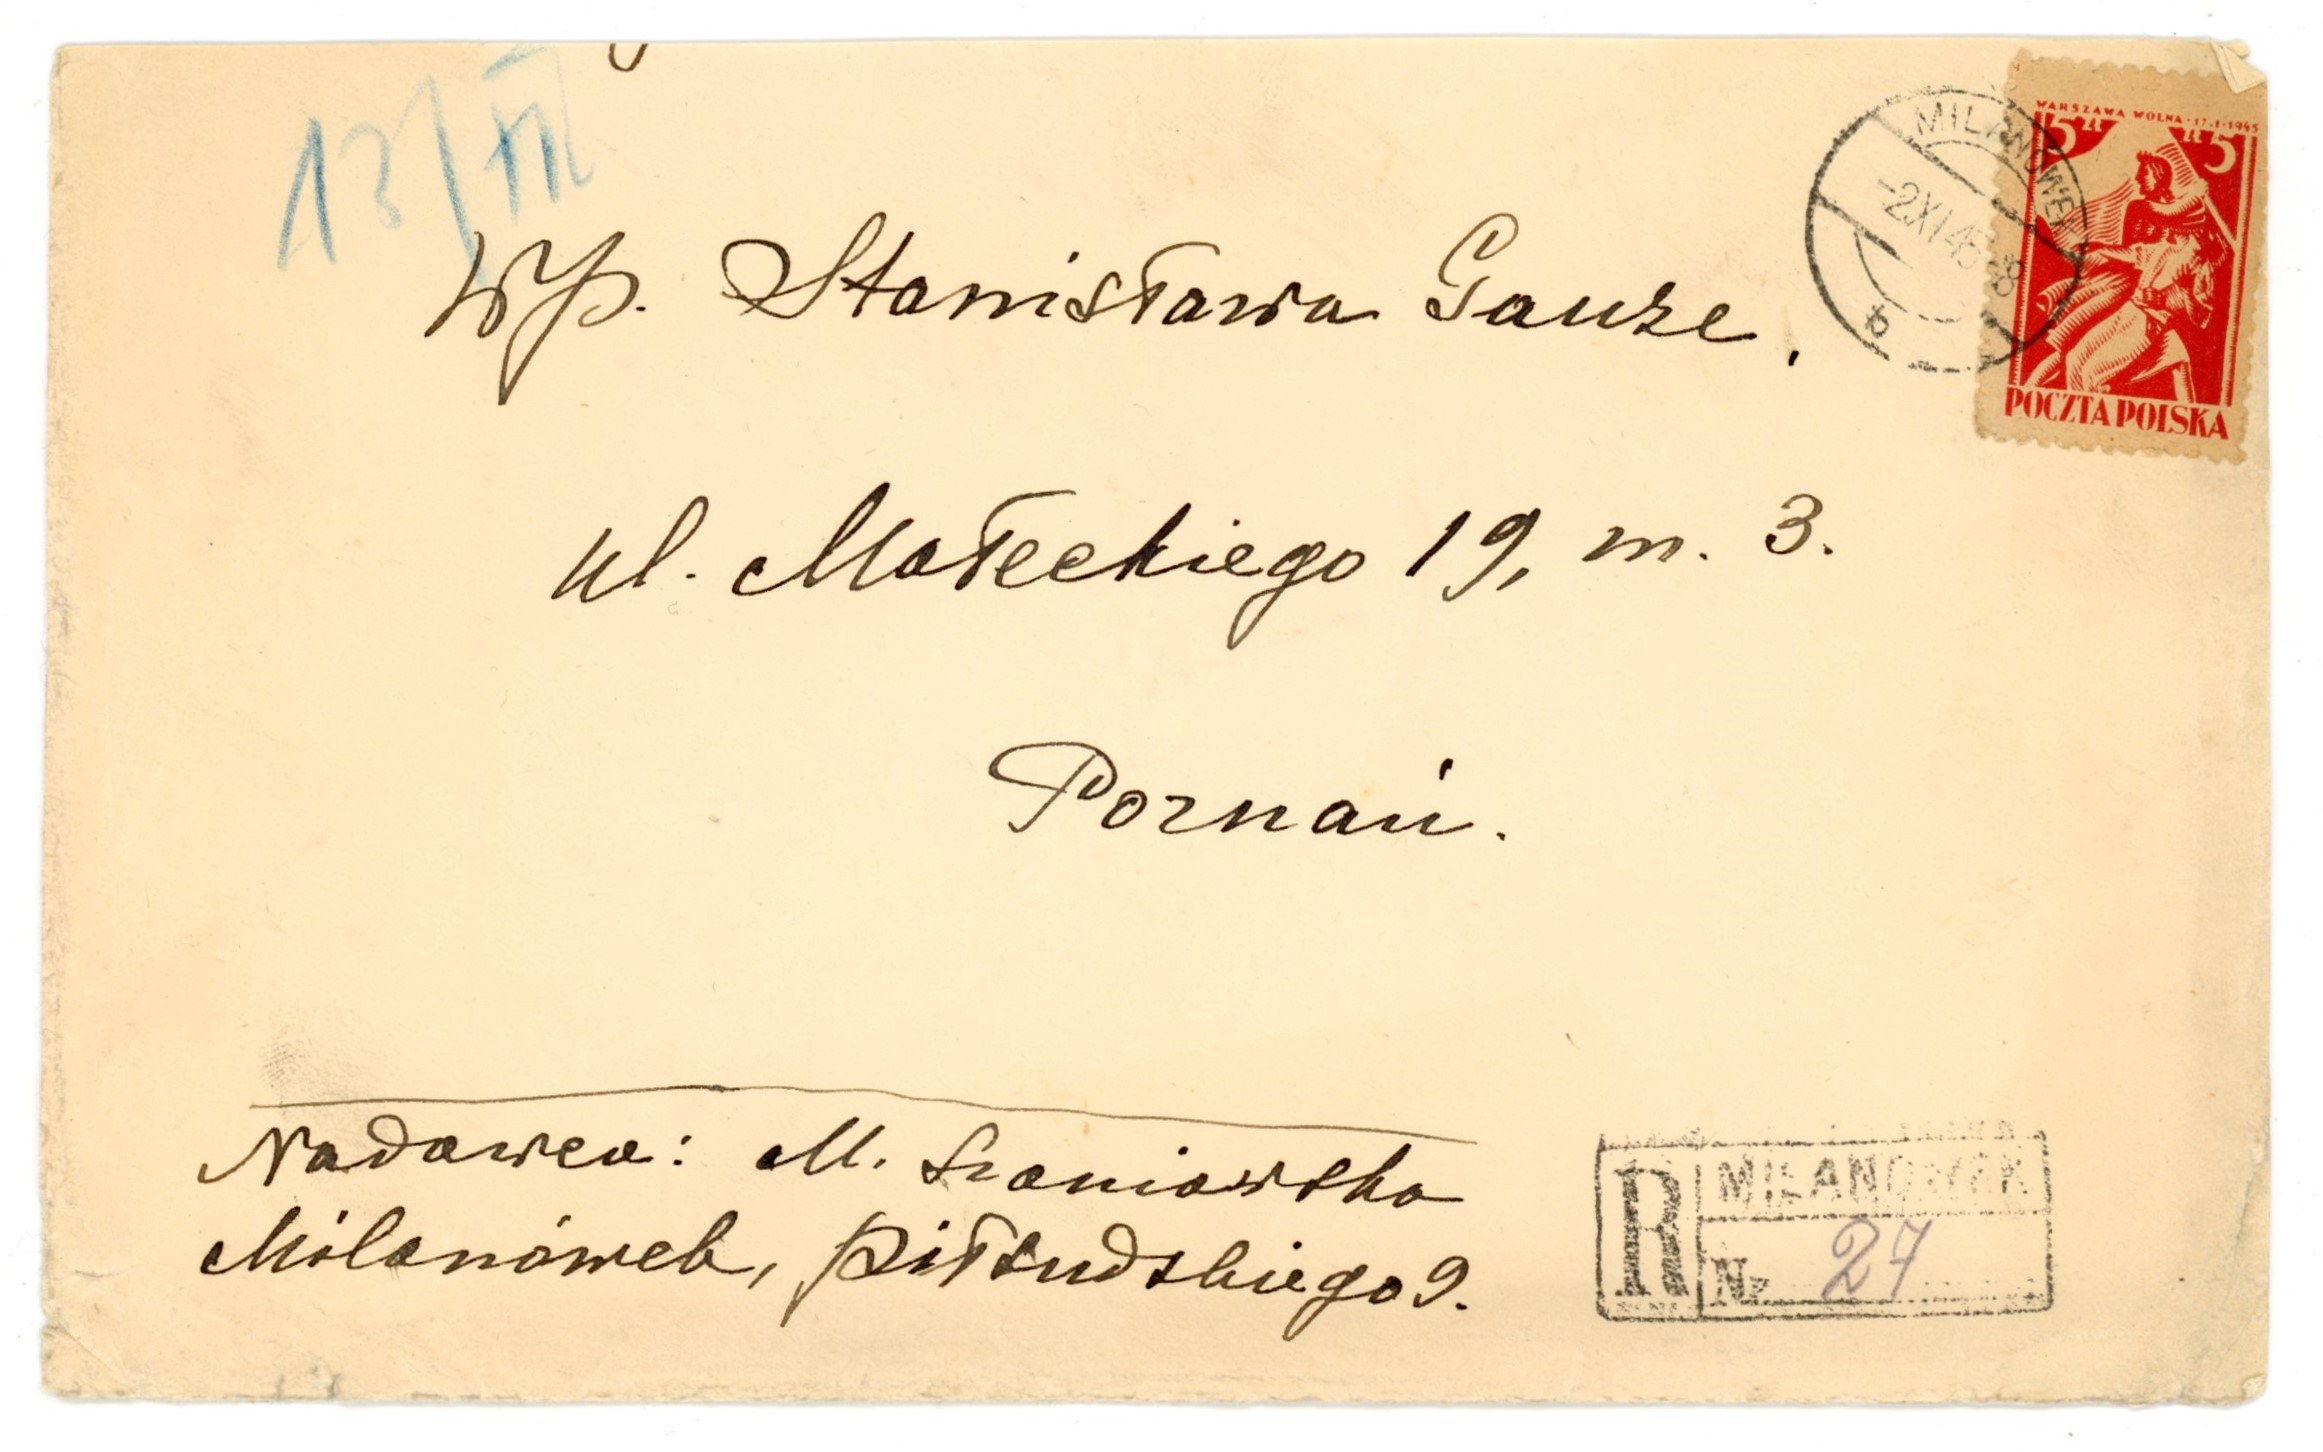 13/XII
WARSZAWA WOLNA - 17-1-1945
5 zł zł 5
POCZTA POLSKA
MILANÓWEK
-2 XI 45 8
b
WP. Stanisława Gauze,
ul. Małeckiego 19, m. 3.
Poznań.
Nadawca: M. Szaniawska
Milanówek, Piłsudskiego 9.
R MILANÓWEK
Nr. 27